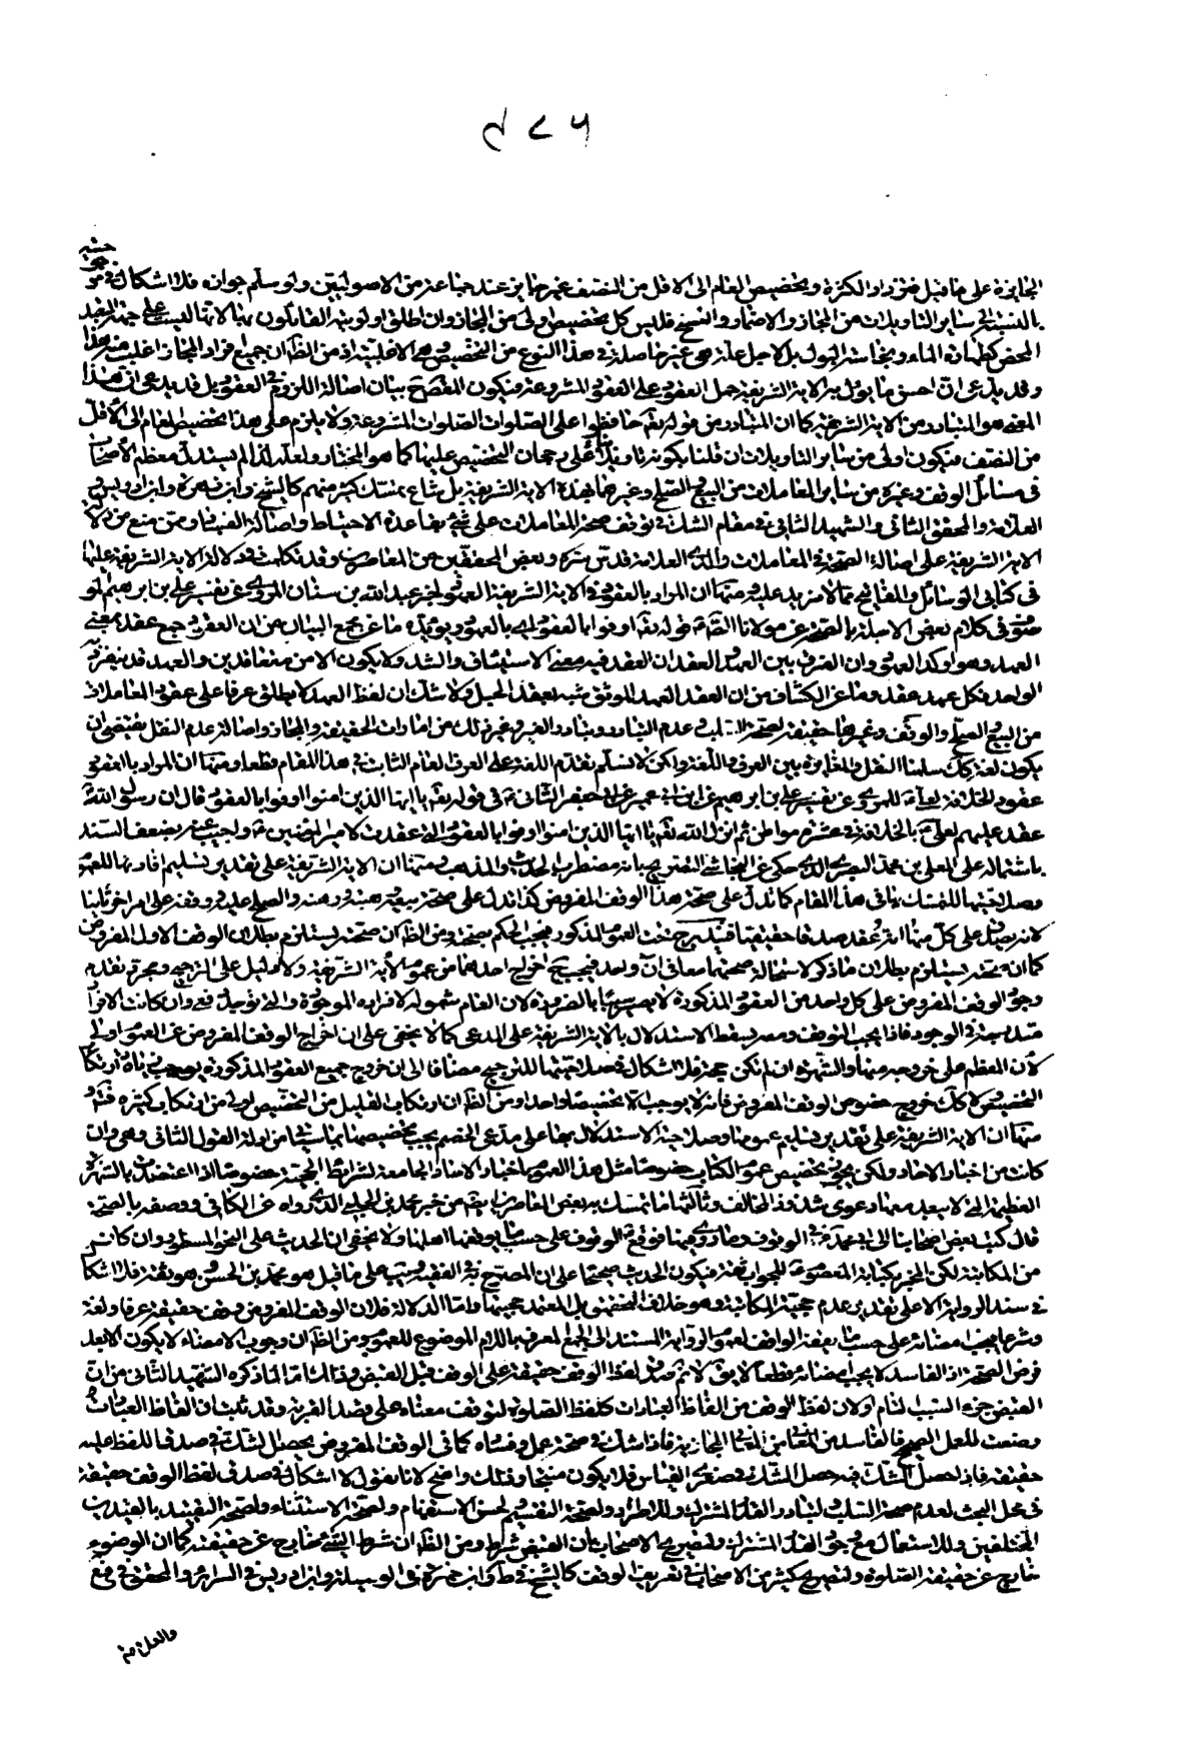 الجايزة على ما قيل فتزداد الكثرة وتخصيص العام الى الاقل من النصف غير جايز عند جماعة من الاصوليين ولو سلم جوازه فلا اشكال في
بالنسبة الى ساير التاويلات من المجاز والاضمار والنسخ فليس كل تخصيص اولى من المجاز وان اطلق اولويته القائلون بها لانها ليست على جهة التعبد
المحض كطهارة الماء ونجاسة البول بل لاجل علة هي غير حاصلة في هذا النوع من التخصيص وهي الاغلبية اذ من الظاهر ان جميع افراد المجاز اغلب من هذا
وقد يدعى ان احسن ما يؤل به الاية الشريفة حمل العقود على العقود المشروعة فيكون المقصود بيان اصالة اللزوم في العقود بل قد يدعى ان هذا
المعنى هو المتبادر من الاية الشريفة كما ان المتبادر من قوله تعالى حافظوا على الصلوات الصلوات المشروعة ولا يلزم على هذا تخصيص العام الى الاقل
من النصف فيكون اولى من ساير التاويلات ان قلنا بكونه تاويلا على رجحان التخصيص عليها كما هو المختار ولعله لذا لم يستدل معظم الاصحاب
في مسائل الوقف وغيره من ساير المعاملات من البيع والصلح وغيرهما بهذه الاية الشريفة بل شاع تمسك كثير منهم كالشيخ وابن زهرة وابن ادريس
العلامة والمحقق الثاني والشهيد الثاني في مقام الشك في توقف صحة المعاملات على شيء بقاعدة الاحتياط واصالة الفساد وممن منع من دلالة
الاية الشريفة على اصالة الصحة في المعاملات والدي العلامة قدس سره وبعض المحققين من المعاصرين وقد تكلمت في دلالة الاية الشريفة عليها
في كتابي الوسائل والمفاتيح بما لا مزيد عليه ومنها ان المراد بالعقود في الاية الشريفة العهود لخبر عبد الله بن سنان المروي عن تفسير علي بن ابرهيم
في كلام بعض الاجلة بالصحة عن مولانا الصادق ع قوله تعالى اوفوا بالعقود اي بالعهود ويؤيده ما عن مجمع البيان من ان العقود جمع عقد بمعنى
العهد وهو اوكد العهود وان الفرق بين العهد والعقد ان العقد فيه معنى الاستيثاق والشد ولا يكون الا من متعاقدين والعهد قد ينفرد به
الواحد فكل عهد عقد وما عن الكشاف من ان العقد العهد الموثق شبه بعقد الحبل ولا شك ان لفظ العهد لا يطلق عرفا على عقود المعاملات
من البيع والصلح والوقف وغيرها حقيقة لصحة السلب وعدم التبادر وتبادر الغير وغير ذلك من امارات الحقيقة والمجاز واصالة عدم النقل يقتضي ان
يكون لغة كذلك سلمنا النقل والمغايرة بين العرف واللغة ولكن لا نسلم تقدم اللغة على العرف العام الثابت في هذا المقام قطعا ومنها ان المراد بالعقود
عقود الخلافة لعلي ع للمروي عن تفسير علي بن ابرهيم عن ابن ابي عمير عن ابي جعفر الثاني ع في قوله تعالى يا ايها الذين امنوا اوفوا بالعقود قال ان رسول الله ص
عقد عليهم لعلي ع بالخلافة في عشرة مواطن ثم انزل الله تعالى يا ايها الذين امنوا اوفوا بالعقود التي عقدت لامير المؤمنين ع واجيب عنه بضعف السند
باشتماله على المعلى بن محمد البصري الذي حكى عن النجاشي التصريح بانه مضطرب الحديث والمذهب ومنها ان الاية الشريفة على تقدير تسليم افادتها للعموم
وصلاحيتها للتمسك بها في هذا المقام كما تدل على صحة هذا الوقف المفروض كذا تدل على صحة بيعه وهبته ورهنه والصلح عليه ووقفه على امر اخر ثانيا
لانه يصدق على كل منها انه عقد صدقا حقيقيا فيندرج تحت العموم المذكور فيجب الحكم بصحته ومن الظاهر ان صحته يستلزم بطلان الوقف الاول المفروض
كما ان صحته يستلزم بطلان ما ذكر لاستحالة صحتهما معا في آن واحد فيجب اخراج احدهما من عموم الاية الشريفة ولا دليل على الترجيح ومجرد تقدم
وجود الوقف المفروض على كل واحد من العقود المذكورة لا يصير مرجحا بالضرورة لان العام شموله لافراده الموجودة والتي توجد دفعي وان كانت الافراد
متدرجة في الوجود فاذا يجب التوقف ومعه يسقط الاستدلال بالاية الشريفة على المدعى كما لا يخفى على ان اخراج الوقف المفروض عن العموم اولى
لان المعظم على خروجه منها والشهرة ان لم تكن حجة فلا اشكال في صلاحيتها للترجيح مضافا الى ان خروج جميع العقود المذكورة يوجب زيادة ارتكاب
التخصيص ولا كذلك خروج خصوص الوقف المفروض فانه لا يوجب الا تخصيصا واحدا ومن الظاهر ان ارتكاب القليل من التخصيص اولى من ارتكاب كثيره
منها ان الاية الشريفة على تقدير تسليم عمومها وصلاحية الاستدلال بها على مدعى الخصم يجب تخصيصها بما سياتي من ادلة القول الثاني وهي وان
كانت من اخبار الاحاد ولكن يجوز تخصيص عموم الكتاب خصوصا مثل هذا العموم باخبار الاحاد الجامعة لشرائط الحجية خصوصا اذا اعتضدت بالشهرة
العظيمة التي لا يبعد معها دعوى شذوذ المخالف وثالثها ما تمسك به بعض المعاصرين من خبر محمد بن يحيى الذي رواه عن الكافي ووصفه بالصحة
قال كتب بعض اصحابنا الى ابي محمد ع في الوقوف وما روي فيها فوقع ع الوقوف على حسب ما يوقفها اهلها ولا يخفى ان الحديث على النحو المسطور وان كان
من المكاتبة لكن المخبر بكتابة المعصوم ع للجواب ثقة فيكون الحديث صحيحا على ان المصرح به في الفقيه كتب على ما قيل هو محمد بن الحسن وهو ثقة فلا اشكال
في سند الرواية الا على تقدير عدم حجية المكاتبة وهو خلاف التحقيق بل المعتمد حجيتها واما الدلالة فلان الوقف المفروض وقف حقيقة عرفا ولغة
وشرعا فيجب امضائه على حسب ما يقفه الواقف لعموم الرواية المستند الى الجمع المعرف باللام الموضوع للعموم ومن الظاهر ان وجوب الامضاء لا يكون الا بعد
فرض الصحة اذ الفاسد لا يجب امضائه قطعا لا يقال لا نسلم صدق لفظ الوقف حقيقة على الوقف قبل القبض وذلك اما لما ذكره الشهيد الثاني من ان
القبض جزء السبب التام او لان لفظ الوقف من الفاظ العبادات كلفظ الصلوة لتوقف معناه على قصد القربة وقد ثبت ان الفاظ العبادات
وضعت للعمل الصحيح فالفاسد من المعاني المجازية فاذا شك في صحة عمل وفساده كما في الوقف المفروض يحصل الشك في صدق اللفظ عليه
حقيقة فاذا حصل الشك فيه حصل الشك في صغرى القياس فلا يكون منتجا وذلك واضح لانا نقول لا اشكال في صدق لفظ الوقف حقيقة
في محل البحث لعدم صحة السلب ولتبادر القدر المشترك وللاطراد ولصحة التقسيم لحسن الاستفهام ولصحة الاستثناء ولصحة التقييد بالقيدين
المختلفين وللاستعمال مع وجود القدر المشترك ولتصريح الاصحاب بان القبض شرط ومن الظاهر ان شرط الشيء خارج عن حقيقته كما ان الوضوء
خارج عن حقيقة الصلوة ولتصريح كثير من الاصحاب في تعريف الوقف كالشيخ في ط وابن حمزة في الوسيلة وابن ادريس في السرائر والمحقق في فع
والعلامة